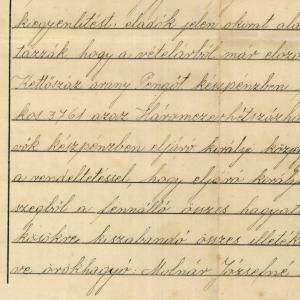 kiegyenlítést, eladók jelen okirat alá
tázzák hogy a vételárból már előző
Kettőszáz arany Pengőt készpénzben
kos 3761 azaz Háromezerhétszázha
vők készpénzben eljáró királyi közjeg
a rendelettéssel, hogy eljáró királyi
szegből a fennálló összes hagyat
kösökre kiszabandó összes illeték
ve örökhagyó: Molnár Józsefné